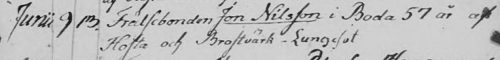 Junii 9 13, Frälsebonden Jon Nilsson i Boda 57 år af
Hosta och Bröstvärk - Lungsot